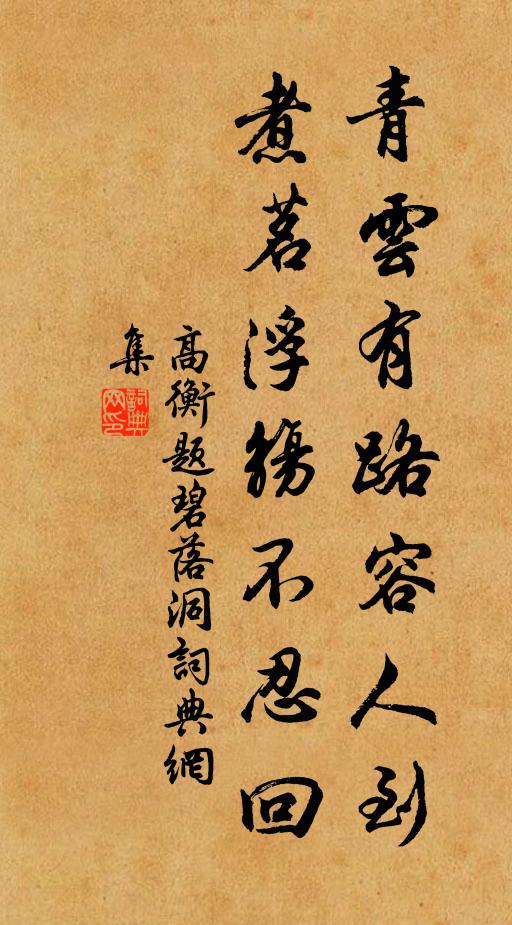 青雲有路容人到
煮茗浮觴不忍回
高衡題碧落洞詞典網
集
詞典
网印